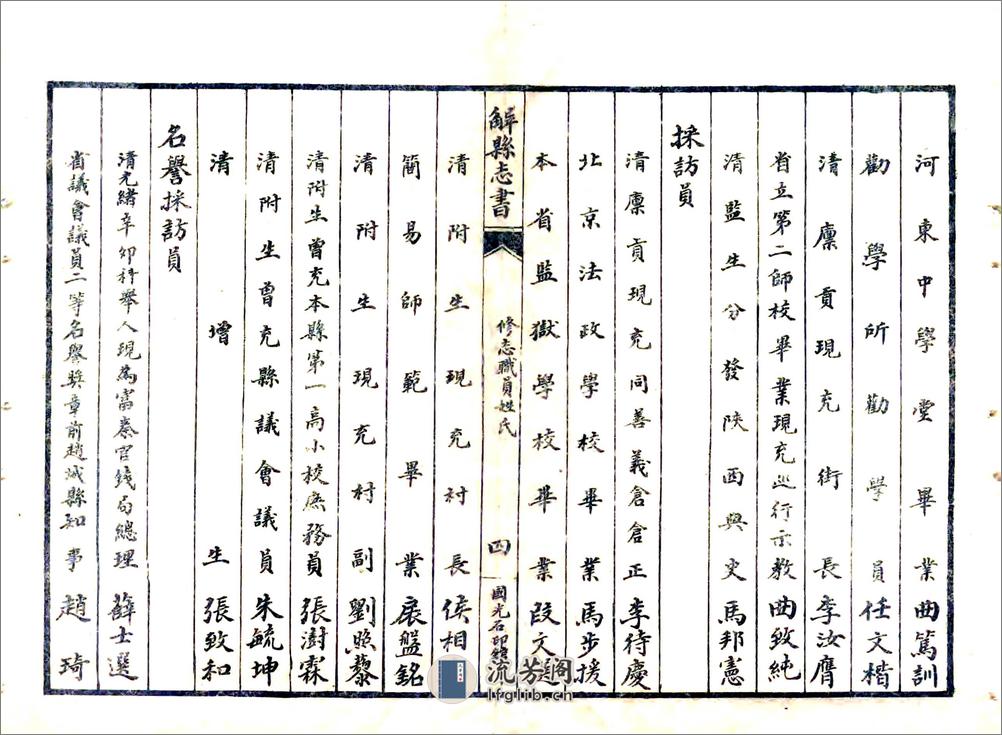 河東中學堂畢業曲篤訓
勸學所勸學員任文楷
清廩貢現充街長李汝膺
省立第二師校畢業現充巡行示教曲致純
清監生分發陝西典史馬邦憲
採訪員
清廩貢現充同善義倉倉正李待慶
北京法政學校畢業馬步援
本省監獄學校畢業段文
解縣志書
修志職員姓氏
四
國光石印
清附生現充村長侯相
簡易師範畢業展盤銘
清附生現充村副劉照藜
清附生曾充本縣第一高小校庶務員張澍霖
清附生曾充縣議會議員朱毓坤
清增生張致和
名譽採訪員
清光緒辛卯科舉人現為富秦官錢局總理薛士選
省議會議員二等名譽獎章前趙城縣知事趙琦
流芳閣
lfglib.cn